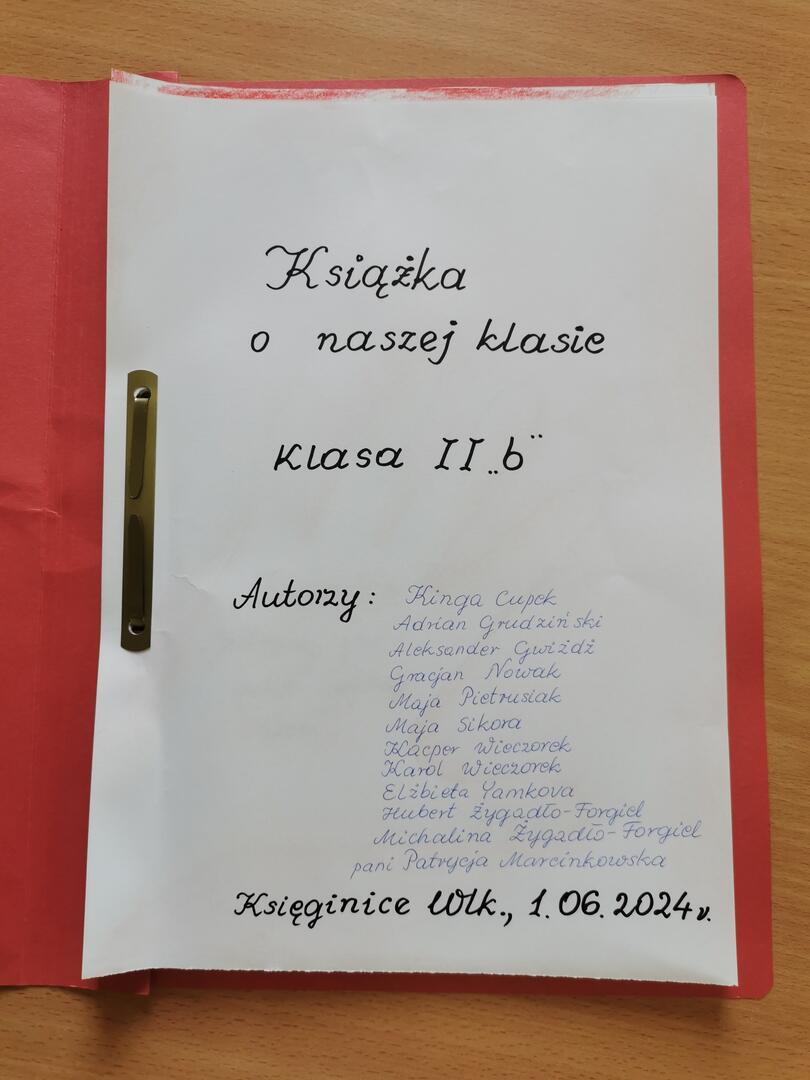 Książka
o naszej klasie
klasa II „b”
Autorzy: Kinga Cupek
Adrian Grudziński
Aleksander Gwiżdż
Gracjan Nowak
Maja Pietrusiak
Maja Sikora
Kacper Wieczorek
Karol Wieczorek
Elżbieta Yamkova
Hubert Żygadło-Forgiel
Michalina Żygadło-Forgiel
pani Patrycja Marcinkowska
Księginice Wlk., 1.06.2024 r.